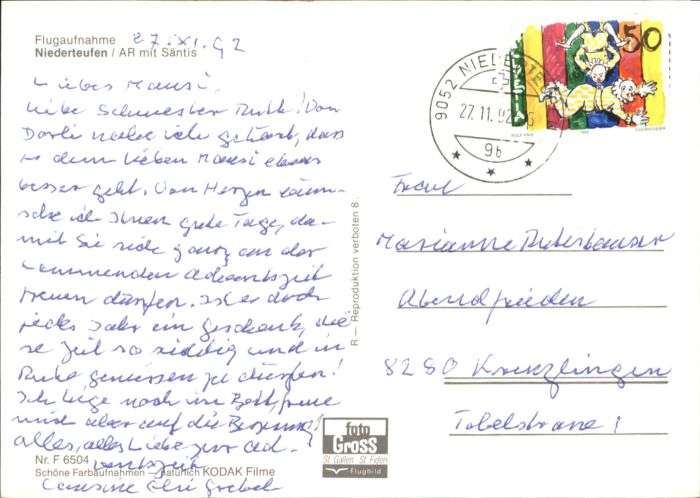 Flugaufnahme
Niederteufen / AR mit Säntis
27. XI. 92
Liebes Mausi,
liebe Schwester Ruth! Von
Dorli habe ich gehört, dass
es dem lieben Mausi etwas
besser geht. Von Herzen wün-
sche ich Ihnen gute Tage, da-
mit Sie sich ganz an der
kommenden Adventszeit
freuen dürfen. Ist es doch
jedes Jahr ein Geschenk, die
se Zeit so richtig und in
Ruhe geniessen zu dürfen!
Ich liege noch im Bett, freue
mich aber auf die Besserung!
Alles, alles Liebe zur Ad-
ventszeit
Elsi
Nr. F 6504
Schöne Farbaufnahmen – natürlich KODAK Filme
R — Reproduktion verboten 8.
foto
GROSS
St. Gallen St. Fiden
Flugbild
9052 NIEDERTEUFEN
27.11.92
9b
HELVETIA
50
Frau
Marianne
Abendfrieden
8280 Kreuzlingen
Tobelstrasse 1